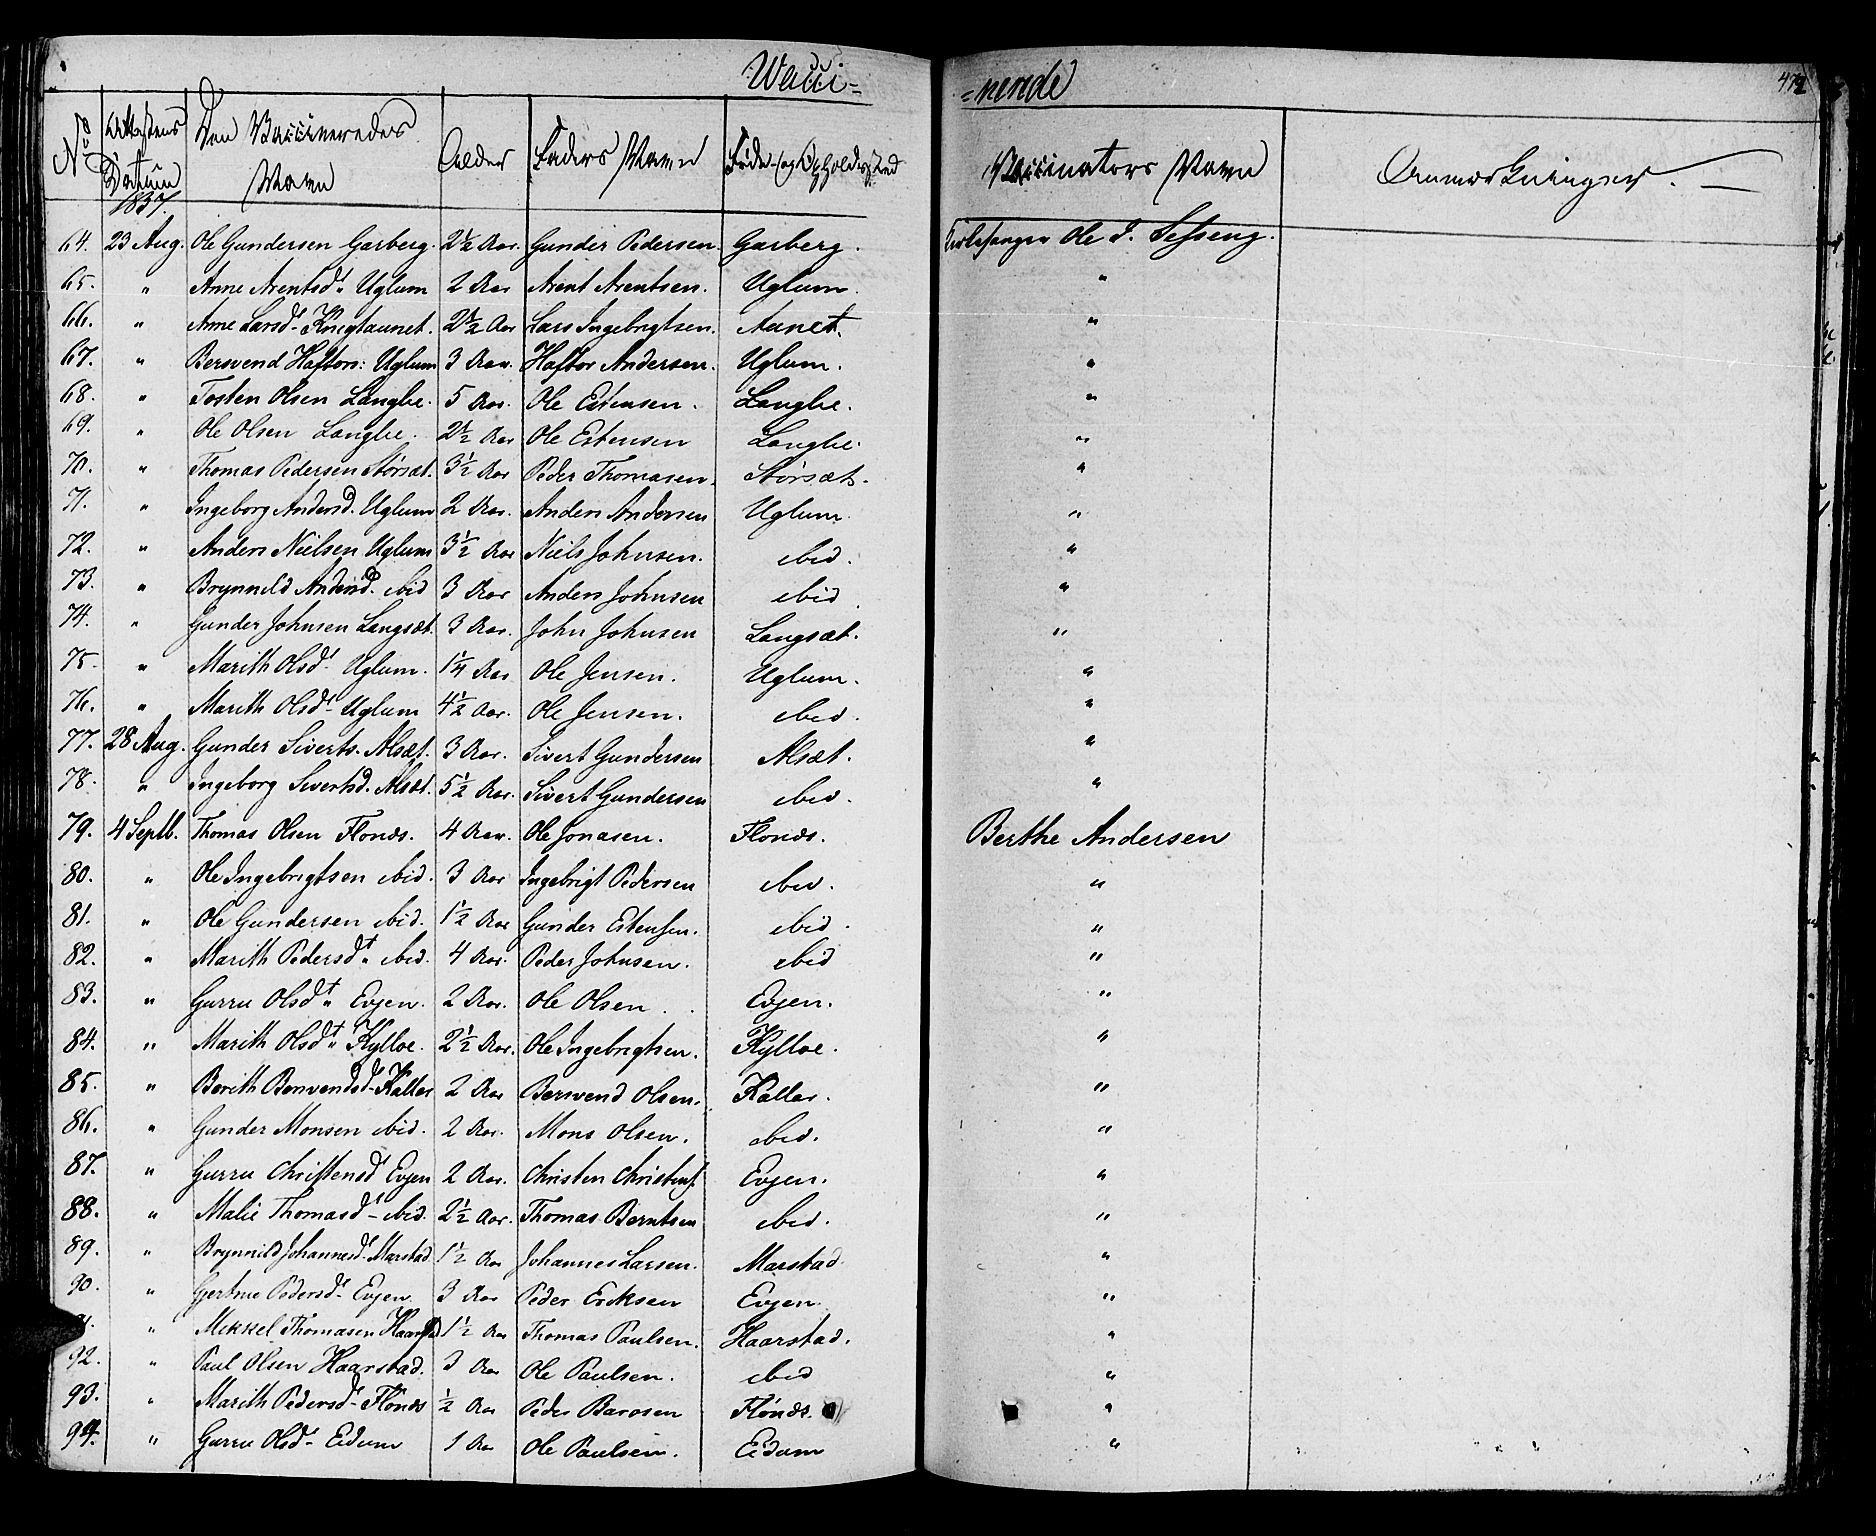 Vacci=
=nerede
472
No
Attestens Datum
Den Vaccineredes Navn
Alder
Faders Navn
Føde- og Opholdssted
Vaccinators Navn
Anmærkninger.
1837.
64. 23 Aug. Ole Gundersen Garberg. 2½ Aar. Gunder Pedersen. Garberg. Kirkesanger Ole J. Sesseng.
65. " Anne Arentsdt. Uglum 2 Aar Arent Arentsen. Uglum. "
66. " Anne Larsdt- Knigtaunet. 2½ Aar Lars Ingebrigtsen. Aunet. "
67. " Bersvend Haftors: Uglum 3 Aar. Haftor Andersen. Uglum. "
68. " Tosten Olsen Langlie. 5 Aar. Ole Estensen. Langlie. "
69. " Ole Olsen Langlie. 2½ Aar Ole Estensen Langlie. "
70. " Thomas Pedersen Størsæt. 3½ Aar Peder Thomasen. Størsæt. "
71. " Ingeborg Andersd. Uglum 2 Aar. Anders Andersen Uglum. "
72. " Anders Nielsen Uglum 3½ Aar Niels Johnsen. ibid. "
73. " Brynnild Andersd. ibid 3 Aar Anders Johnsen ibid. "
74. " Gunder Johnsen Langsæt. 3 Aar. John Johnsen Langsæt. "
75. " Marith Olsdt Uglum. 1¼ Aar Ole Jensen. Uglum. "
76. " Marith Olsdt- Uglum 4½ Aar. Ole Jensen. ibid. "
77. 28 Aug. Gunder Siverts. Alsæt. 3 Aar. Sivert Gundersen Alsæt. "
78. " Ingeborg Sivertsd. Alsæt. 5½ Aar. Sivert Gundersen ibid. "
79. 4 Septb. Thomas Olsen Flonæs. 4 Aar. Ole Jonasen. Flonæs. Berthe Andersen
80. " Ole Ingebrigtsen ibid. 3 Aar Ingebrigt Pedersen ibid. "
81. " Ole Gundersen ibid. 1½ Aar Gunder Estensen. ibid. "
82. " Marith Pedersdt. ibid. 4 Aar. Peder Johnsen. ibid "
83. " Gurru Olsdt. Evjen. 2 Aar. Ole Olsen. Evjen. "
84. " Marith Olsdt. Kylloe. 2½ Aar. Ole Ingebrigtsen. Kylloe. "
85. " Berith Bersvendsdt- Kallar 2 Aar Bersvend Olsen. Kallar. "
86. " Gunder Monsen ibid. 2 Aar. Mons Olsen. ibid. "
87. " Gurru Christensdt Evjen 2 Aar. Christen Christens. Evjen. "
88. " Malie Thomasdt- ibid. 2½ Aar. Thomas Berntsen ibid. "
89. " Brynnild Johannesdt- Marstad 1½ Aar Johannes Larsen. Marstad. "
90. " Gertrue Pedersdt- Evjen 3 Aar Peder Ericksen Evjen. "
91. " Mikkel Thomasen Haarstad 1½ Aar Thomas Paulsen. Haarstad. "
92. " Paul Olsen Haarstad. 3 Aar Ole Paulsen. ibid "
93. " Marith Pedersdt- Flonæs ½ Aar Peder Barosen Flonæs. "
94. " Gurru Olsdt- Eidum 1 Aar Ole Paulsen. Eidum "